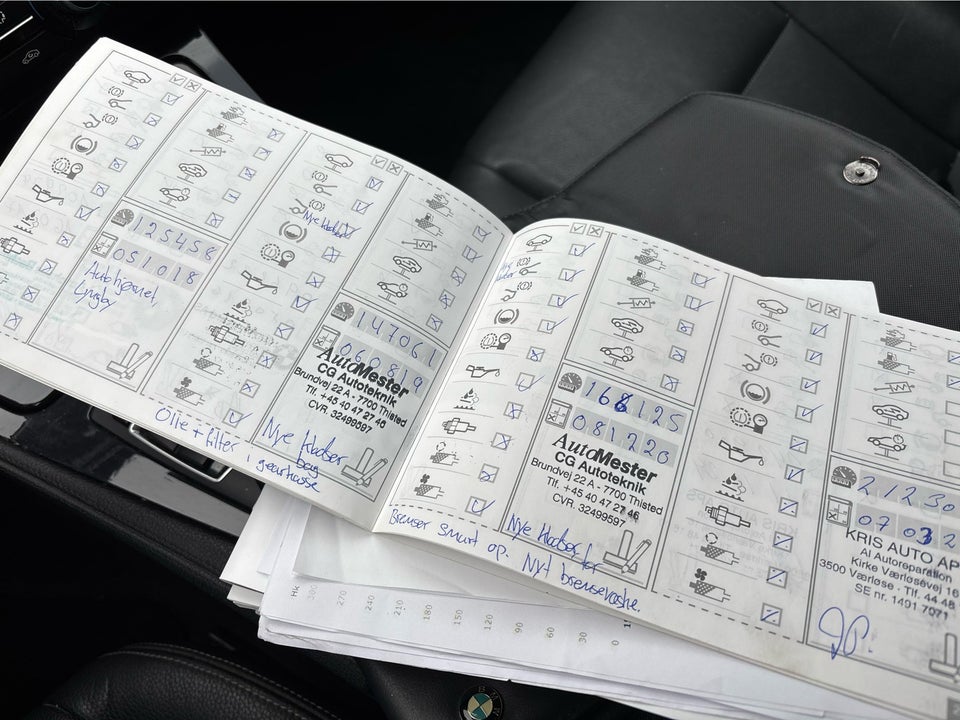 125458
051018
Autohjørnet,
Lyngby
Olie + filter i gearkasse
Nye klodser
147061
060819
AutoMester
CG Autoteknik
Brundvej 22 A - 7700 Thisted
Tlf. +45 40 47 27 46
CVR. 32499597
Nye klodser
bag
168125
081220
AutoMester
CG Autoteknik
Brundvej 22 A - 7700 Thisted
Tlf. +45 40 47 27 46
CVR. 32499597
Nye klodser for
Bremser smurt op. Nyt bremsevæske.
21230
07 032
KRIS AUTO AP
Al Autoreparation
Kirke Værløsevej 16
3500 Værløse - Tlf. 44 48
SE nr. 1491 7071
Hk
300
270
240
210
180
150
120
90
60
30
0